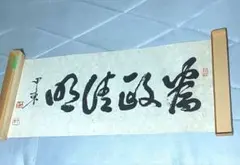 為政清明